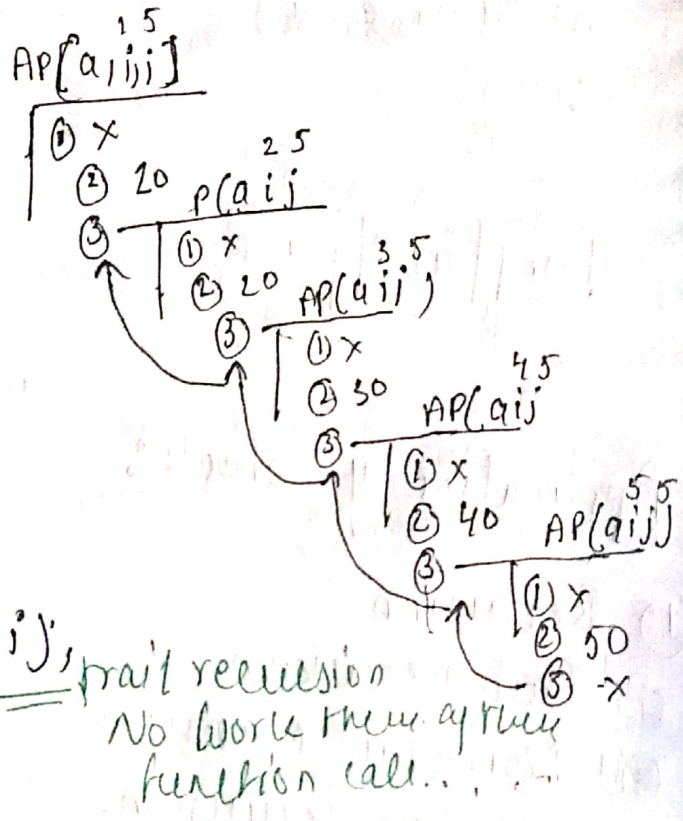 1 5
AP[a,i,j]
① x
② 20
2 5
P(a i j
③
① x
② 20
3 5
AP(a i j)
③
① x
② 30
4 5
AP(a i j
③
① x
② 40
5 5
AP(a i j)
③
① x
② 50
③ -x
i j,
trail recursion
No work there after
function call...